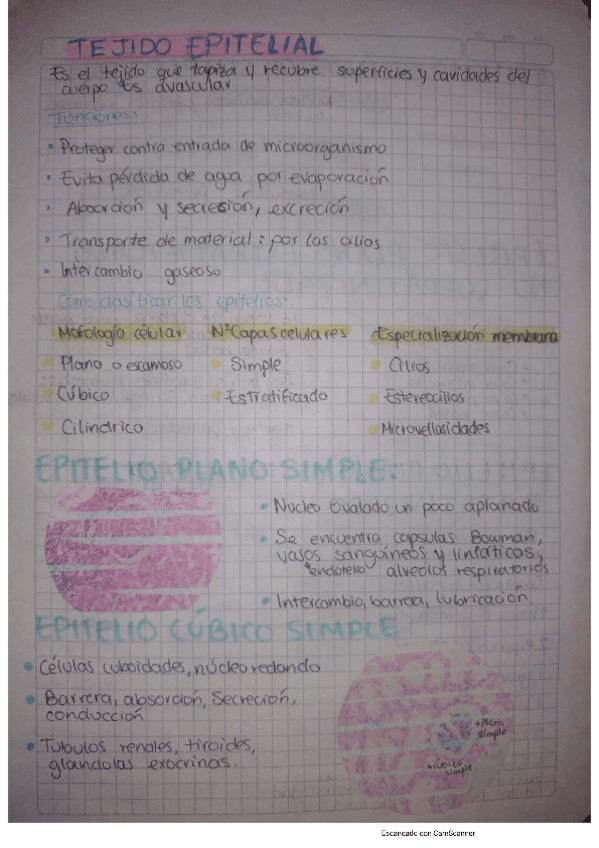 TEJIDO EPITELIAL
Es el tejido que tapiza y recubre superficies y cavidades del
cuerpo. Es avascular
Funciones:
• Proteger contra entrada de microorganismo
• Evita pérdida de agua por evaporación
• Absorción y secresión, excreción
• Transporte de material: por los cilios
• Intercambio gaseoso
Como clasificar los epitelios:
Mofología célular N° Capas celulares Especialización membrana
Plano o escamoso Simple Cilios
Cúbico Estratificado Estereocilios
Cilindrico Microvellosidades
EPITELIO PLANO SIMPLE:
• Nucleo ovalado un poco aplanado
• Se encuentra capsulas Bowman,
vasos sanguíneos y linfáticos,
"endotelio" alveolos respiratorios
• Intercambio, barrera, lubricación.
EPITELIO CÚBICO SIMPLE
• Células cuboidades, núcleo redondo
• Barrera, absorción, Secreción,
conducción
• Tubulos renales, tiroides,
glandulas exocrinas.
→Plano
simple
→cúbico
simple
Escaneado con CamScanner